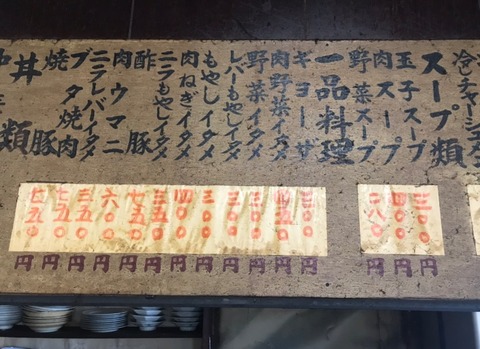 スープ類
玉子スープ
三〇〇円
肉スープ
四〇〇円
野菜スープ
三八〇円
一品料理
ギョーザ
三〇〇円
肉野菜イタメ
四五〇円
野菜イタメ
三〇〇円
レバーもやしイタメ
三〇〇円
もやしイタメ
三〇〇円
肉ねぎイタメ
四〇〇円
ニラもやしイタメ
三五〇円
酢豚
七五〇円
肉ウマニ
六〇〇円
ニラレバーイタメ
三五〇円
ブタ焼肉
七五〇円
焼豚
円
丼類